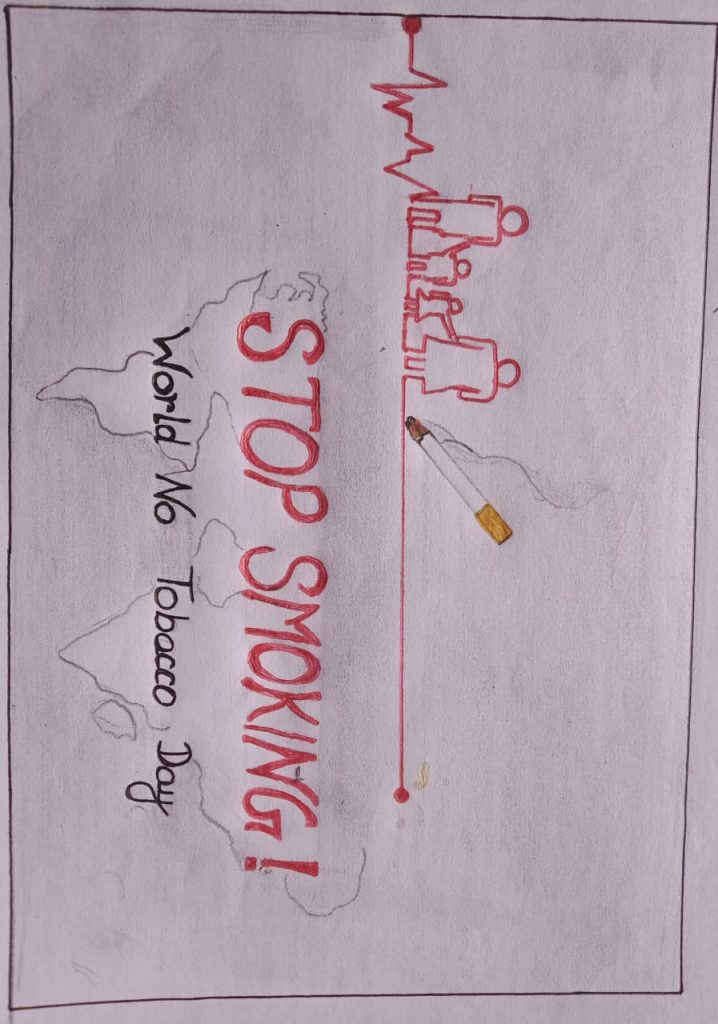 STOP SMOKING!
World No Tobacco Day